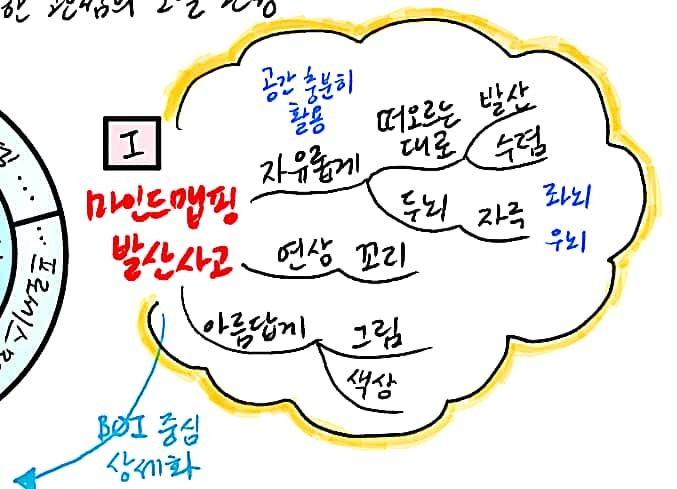 한 관점의
I
마인드맵핑
발산사고
공간 충분히
활용
자유롭게
떠오르는
대로
발산
수렴
두뇌
자극
좌뇌
우뇌
연상
꼬리
아름답게
그림
색상
BOI 중심
상세화
...
... 프로세스